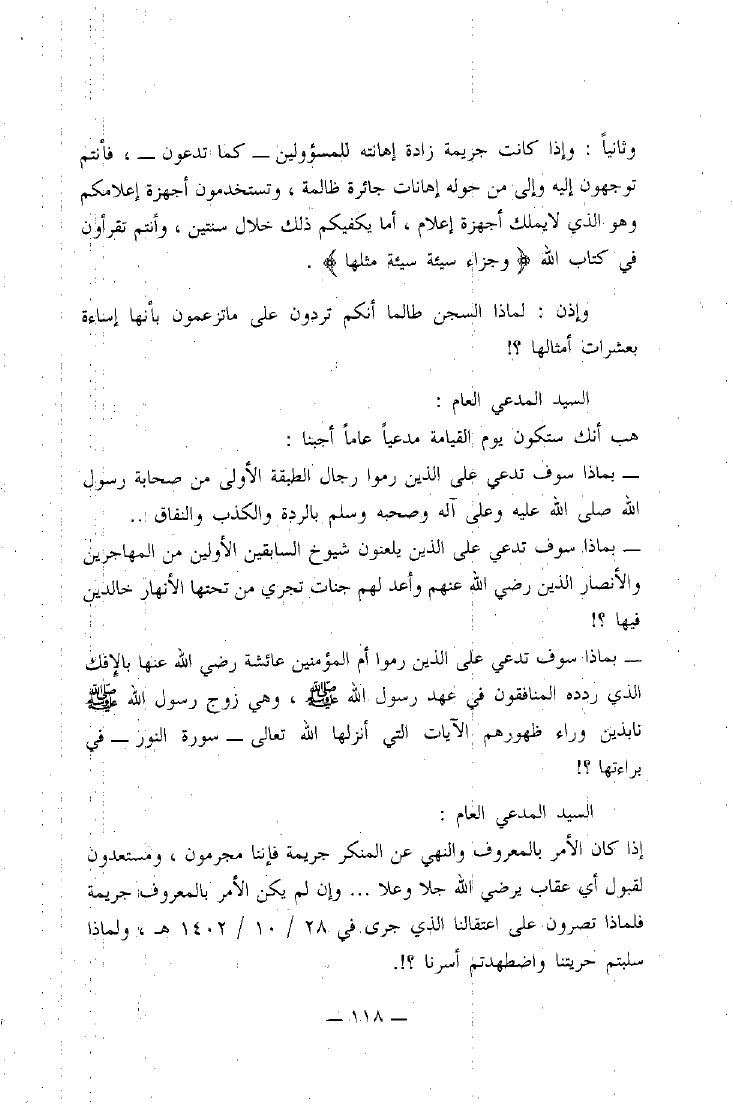 وثانياً : وإذا كانت جريمة زادة إهانته للمسؤولين — كما تدعون — ، فأنتم
توجهون إليه وإلى من حوله إهانات جائرة ظالمة ، وتستخدمون أجهزة إعلامكم
وهو الذي لايملك أجهزة إعلام ، أما يكفيكم ذلك خلال سنتين ، وأنتم تقرأون
في كتاب الله ﴿ وجزاء سيئة سيئة مثلها ﴾ .
وإذن : لماذا السجن طالما أنكم تردون على ماتزعمون بأنها إساءة
بعشرات أمثالها ؟!
السيد المدعي العام :
هب أنك ستكون يوم القيامة مدعياً عاماً أجبنا :
— بماذا سوف تدعي على الذين رموا رجال الطبقة الأولى من صحابة رسول
الله صلى الله عليه وعلى آله وصحبه وسلم بالردة والكذب والنفاق ..
— بماذا سوف تدعي على الذين يلعنون شيوخ السابقين الأولين من المهاجرين
والأنصار الذين رضي الله عنهم وأعد لهم جنات تجري من تحتها الأنهار خالدين
فيها ؟!
— بماذا سوف تدعي على الذين رموا أم المؤمنين عائشة رضي الله عنها بالإفك
الذي ردده المنافقون في عهد رسول الله ﷺ ، وهي زوج رسول الله ﷺ
نابذين وراء ظهورهم الآيات التي أنزلها الله تعالى — سورة النور — في
براءتها ؟!
السيد المدعي العام :
إذا كان الأمر بالمعروف والنهي عن المنكر جريمة فإننا مجرمون ، ومستعدون
لقبول أي عقاب يرضي الله جلا وعلا ... وإن لم يكن الأمر بالمعروف جريمة
فلماذا تصرون على اعتقالنا الذي جرى في ٢٨ / ١٠ / ١٤٠٢ هـ ، ولماذا
سلبتم حريتنا واضطهدتم أسرنا ؟!.
— ١١٨ —